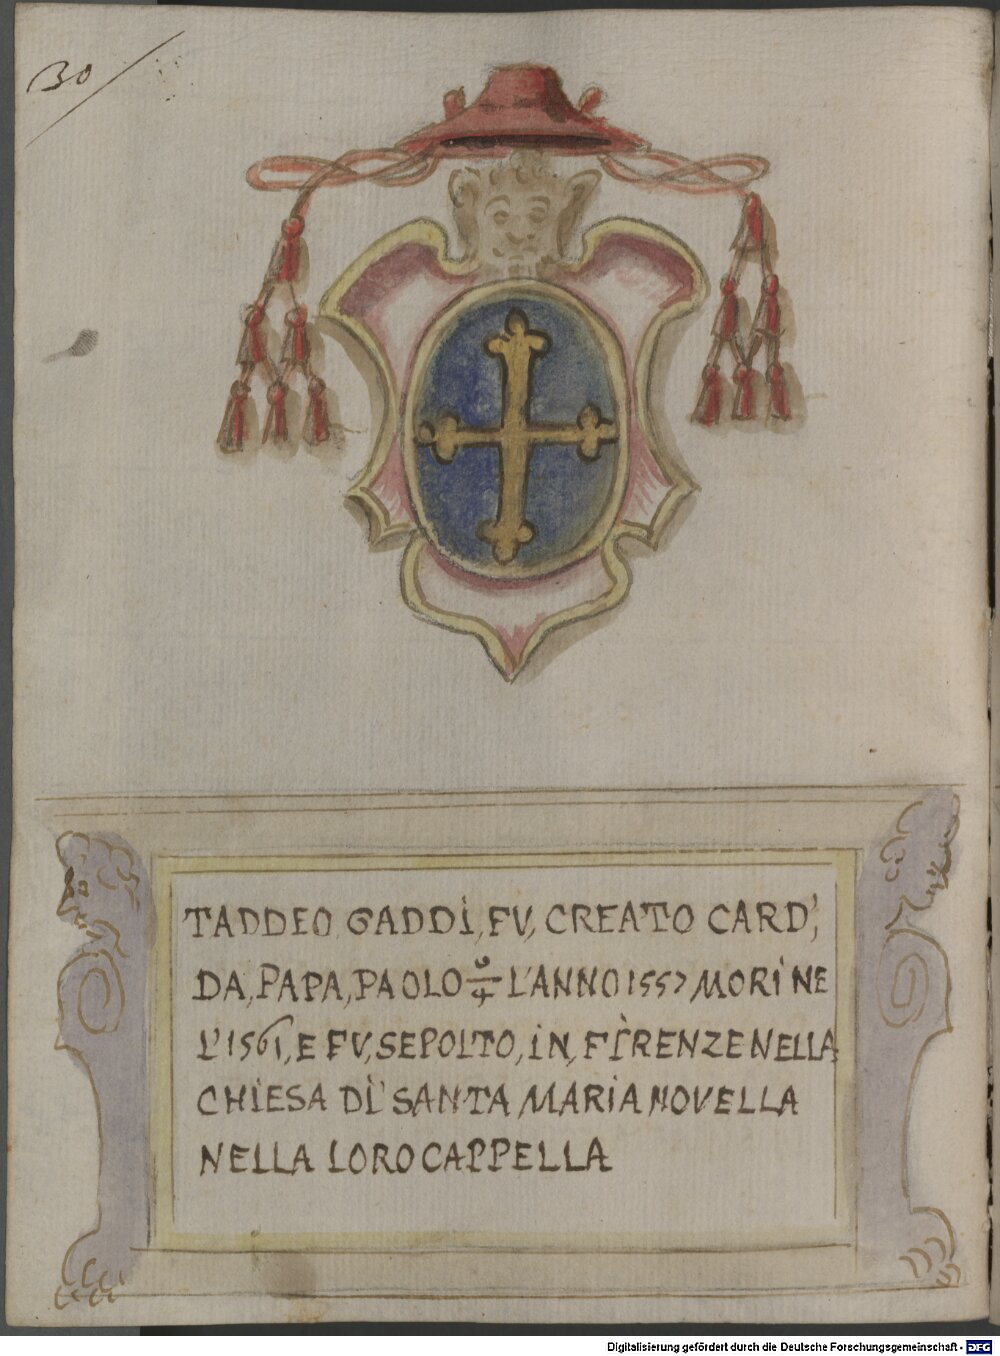 30
TADDEO GADDI, FV, CREATO CARD',
DA, PAPA, PAOLO 4° L'ANNO 1557 MORI NE
L'1561, E FV, SEPOLTO, IN, FIRENZE NELLA
CHIESA DI SANTA MARIA NOVELLA
NELLA LORO CAPPELLA
Digitalisierung gefördert durch die Deutsche Forschungsgemeinschaft - DFG